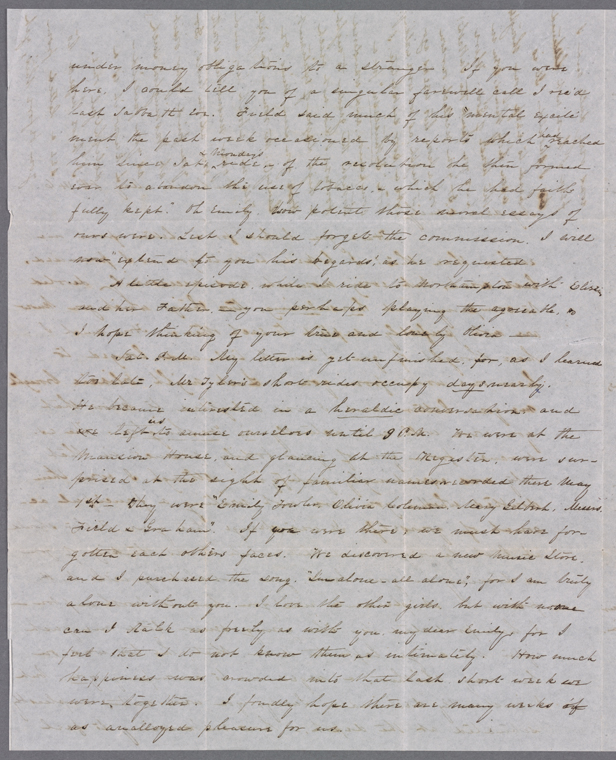 under money obligations to a stranger. If you were
here, I could tell you of a singular farewell call I rec'd
last Sabbath Eve. Could said much of his "mental excite
ment the past week occasioned by reports which had reached
him since Sab., Monday's ride, of the resolution he then formed
to abandon the use of tobacco, & which he had faith
fully kept." Oh Emily, how potent those moral essays of
ours were. Lest I should forget the commission, I will
now "extend to you his regards" as he requested.
A little episode, while I ride to Northampton with Eliza
and her Father — you perhaps playing the agreeable, or
I hope thinking of your true and lonely
Sat. P.M. My letter is yet unfinished, for, as I learned
too late, Mr Tyler's short rides occupy days nearly.
He became interested in a heraldic conversation and
left us to amuse ourselves until 9 P.M. We were at the
Mansion House, and glancing at the Register, were sur-
prised at the sight of familiar names recorded there May
1st — They were "Emily Fowler, Olive Coleman, Mary Gilbert, Messrs.
Field & Graham". If you were there, we must have for-
gotten each others faces. We discovered a new Music Store,
and I purchased the song, "I'm alone – all alone", for I am truly
alone without you. I love the other girls, but with none
can I talk as freely as with you, my dear Emily, for I
feel that I do not know them as intimately. How much
happiness was crowded into that last short week we
were together. I fondly hope there are many weeks of
as unalloyed pleasure for us.